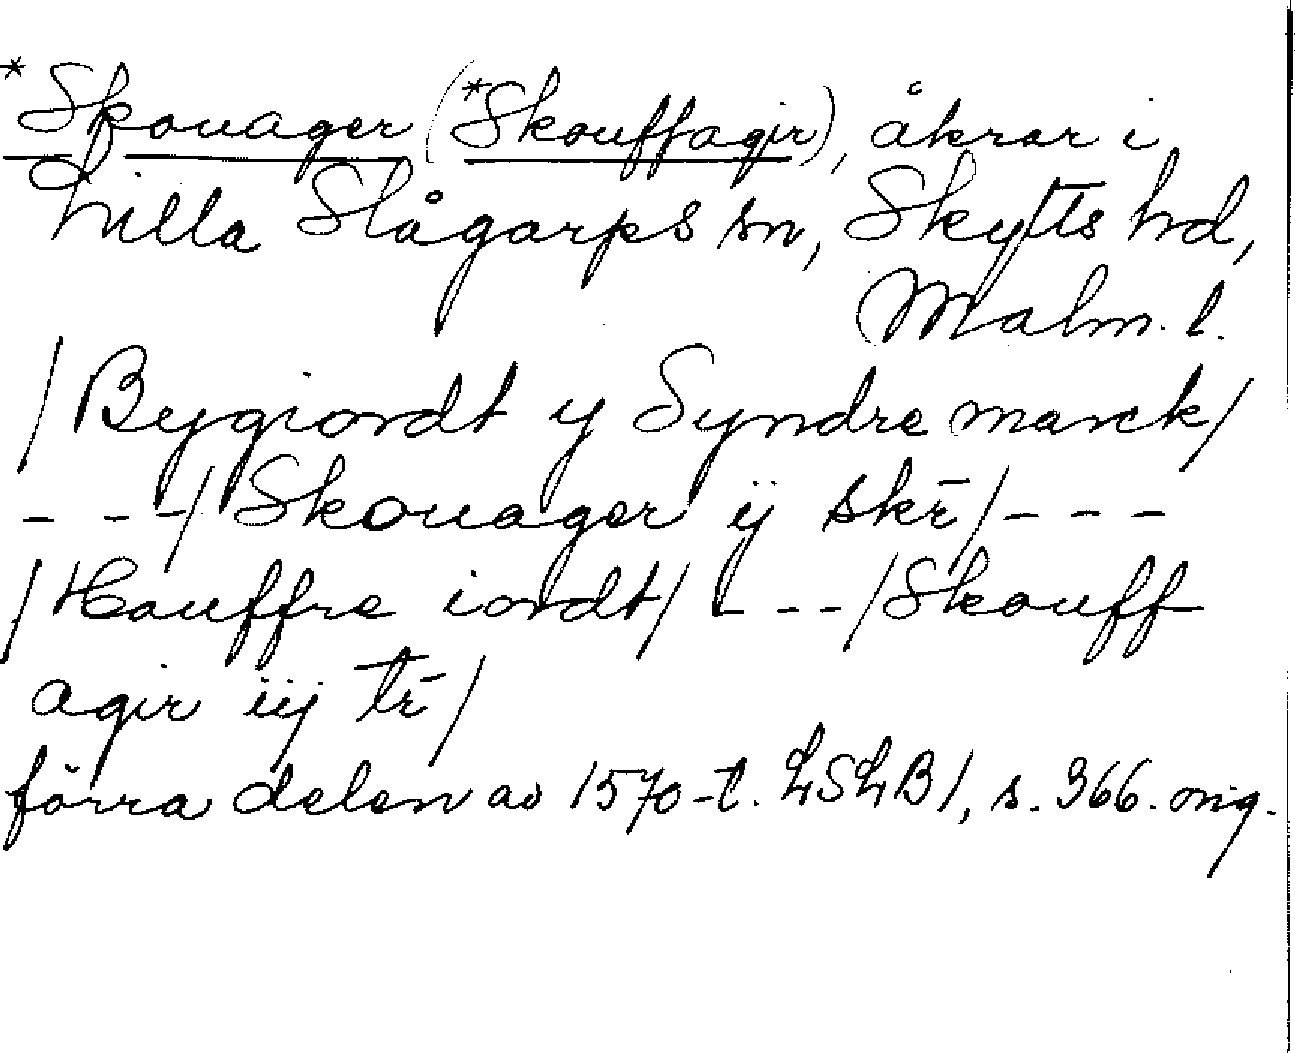 *Skouager (*Skouffagir), åkrar i
Lilla Slågarps sn, Skytts hd,
Malm. l.
/Bygiordt y Syndre marck/
- - -/Skouager ÿ skr̄/- - -
/Houffre iordt/ - - -/Skouff
agir iij tr̄/
förra delen av 1570-t. LSLB1, s. 366. orig.